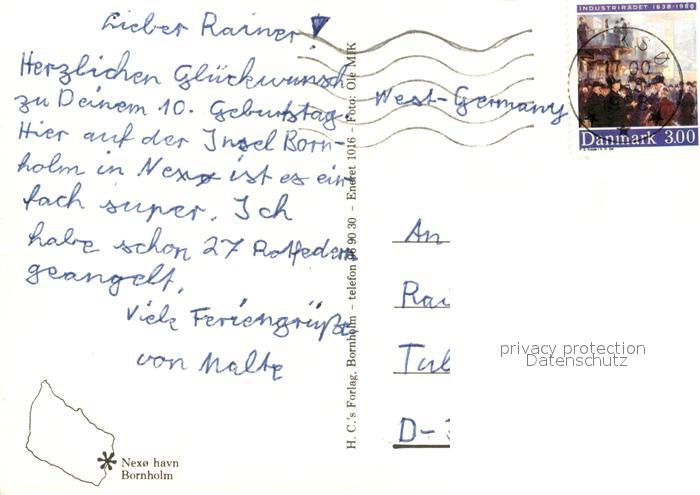 Lieber Rainer!
Herzlichen Glückwunsch
zu Deinem 10. Geburtstag.
Hier auf der Insel Born-
holm in Nexø ist es ein-
fach super. Ich
habe schon 27 Rotfedern
geangelt.
Viele Feriengrüße
von Malte
Nexø havn
Bornholm
H. C.'s Forlag, Bornholm – telefon 96 90 30 – Eneret 1016 – Foto: Ole MIK
West-Germany
INDUSTRIRÅDET 1838-1988
Danmark 3.00
An
Rai
Tul
D-3
privacy protection
Datenschutz